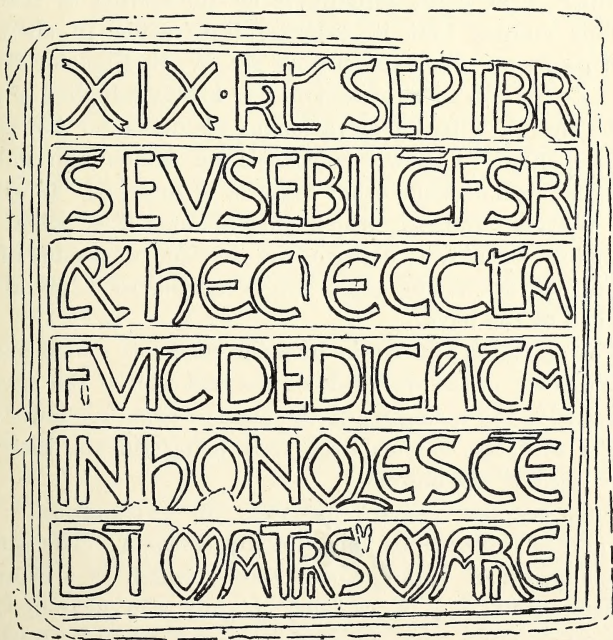 XIX·KL̄ SEPTBR
S̄ EVSEBII C̄FSR
& hEC' ECCL̄A
FVIT DEDICATA
IN hONORE SC̄E
DĪ MATRS MARE